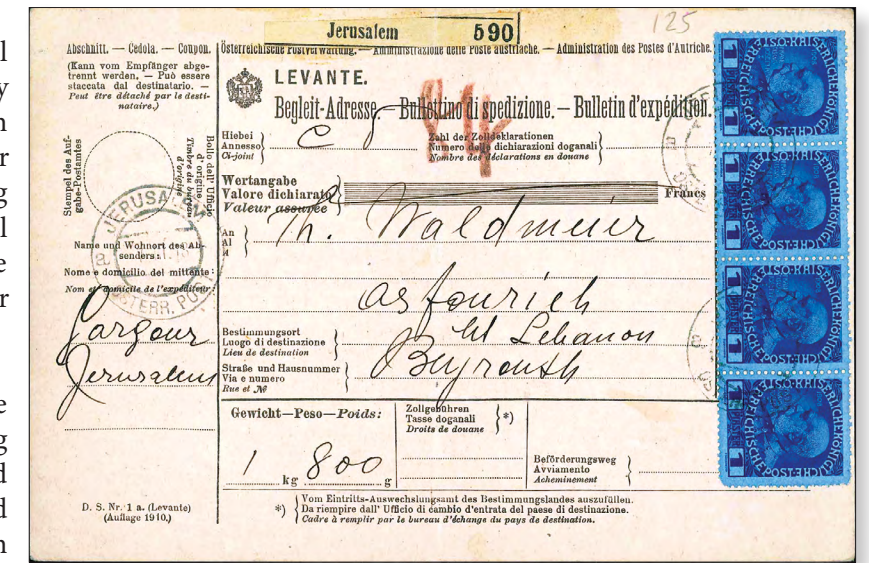 Jerusalem 590
125
Abschnitt. — Cedola. — Coupon.
(Kann vom Empfänger abge-
trennt werden. — Può essere
staccata dal destinatario. —
Peut être détaché par le desti-
nataire.)
Stempel des Auf-
gabe-Postamtes
Bollo dell' Ufficio
d'origine
Timbre du bureau
d'origine
JERUSALEM
ÖSTERR. POST
Name und Wohnort des Ab-
senders:
Nome e domicilio del mittente:
Nom et domicile de l'expéditeur:
Gargour
Jerusalem
D. S. Nr. 1 a. (Levante)
(Auflage 1910.)
Österreichische Postverwaltung. — Amministrazione delle Poste austriache. — Administration des Postes d'Autriche.
LEVANTE.
Begleit-Adresse. — Bullettino di spedizione. — Bulletin d'expédition.
Hiebei
Annesso
Ci-joint
Zahl der Zolldeklarationen
Numero delle dichiarazioni doganali
Nombre des déclarations en douane
Wertangabe
Valore dichiarato
Valeur assurée
Francs
An
Al
A
Th. Waldmeier
Asfourieh
Lebanon
Bestimmungsort
Luogo di destinazione
Lieu de destination
Beyrouth
Straße und Hausnummer
Via e numero
Rue et №
Gewicht—Peso—Poids:
1 kg 800 g
Zollgebühren
Tasse doganali
Droits de douane
*)
Beförderungsweg
Avviamento
Acheminement
*)
Vom Eintritts-Auswechslungsamt des Bestimmungslandes auszufüllen.
Da riempire dall' Ufficio di cambio d'entrata del paese di destinazione.
Cadre à remplir par le bureau d'échange du pays de destination.
1 PIASTER 1
1 PIASTER 1
1 PIASTER 1
1 PIASTER 1